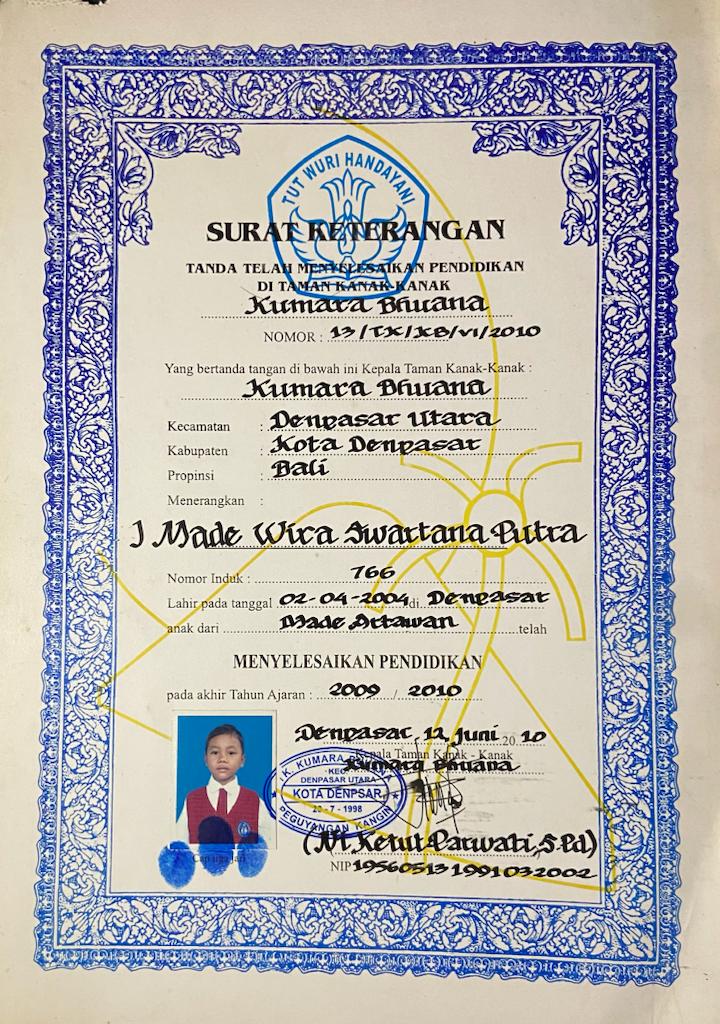 TUT WURI HANDAYANI
SURAT KETERANGAN
TANDA TELAH MENYELESAIKAN PENDIDIKAN
DI TAMAN KANAK-KANAK
Kumara Bhuana
NOMOR : 13/TK/KB/VI/2010
Yang bertanda tangan di bawah ini Kepala Taman Kanak-Kanak :
Kumara Bhuana
Kecamatan : Denpasar Utara
Kabupaten : Kota Denpasar
Propinsi : Bali
Menerangkan :
I Made Wira Swartana Putra
Nomor Induk : 766
Lahir pada tanggal 02-04-2004 di Denpasar
anak dari Made Artawan telah
MENYELESAIKAN PENDIDIKAN
pada akhir Tahun Ajaran : 2009 / 2010
Denpasar, 12 Juni 20 10
Kepala Taman Kanak - Kanak
Kumara Bhuana
T.K. KUMARA
KEC.
DENPASAR UTARA
KOTA DENPSAR
20 - 7 - 1998
PEGUYANGAN KANGIN
(Ni Ketut Parwati, S.Pd)
Cap tiga jari
NIP 19560513 199103 2002